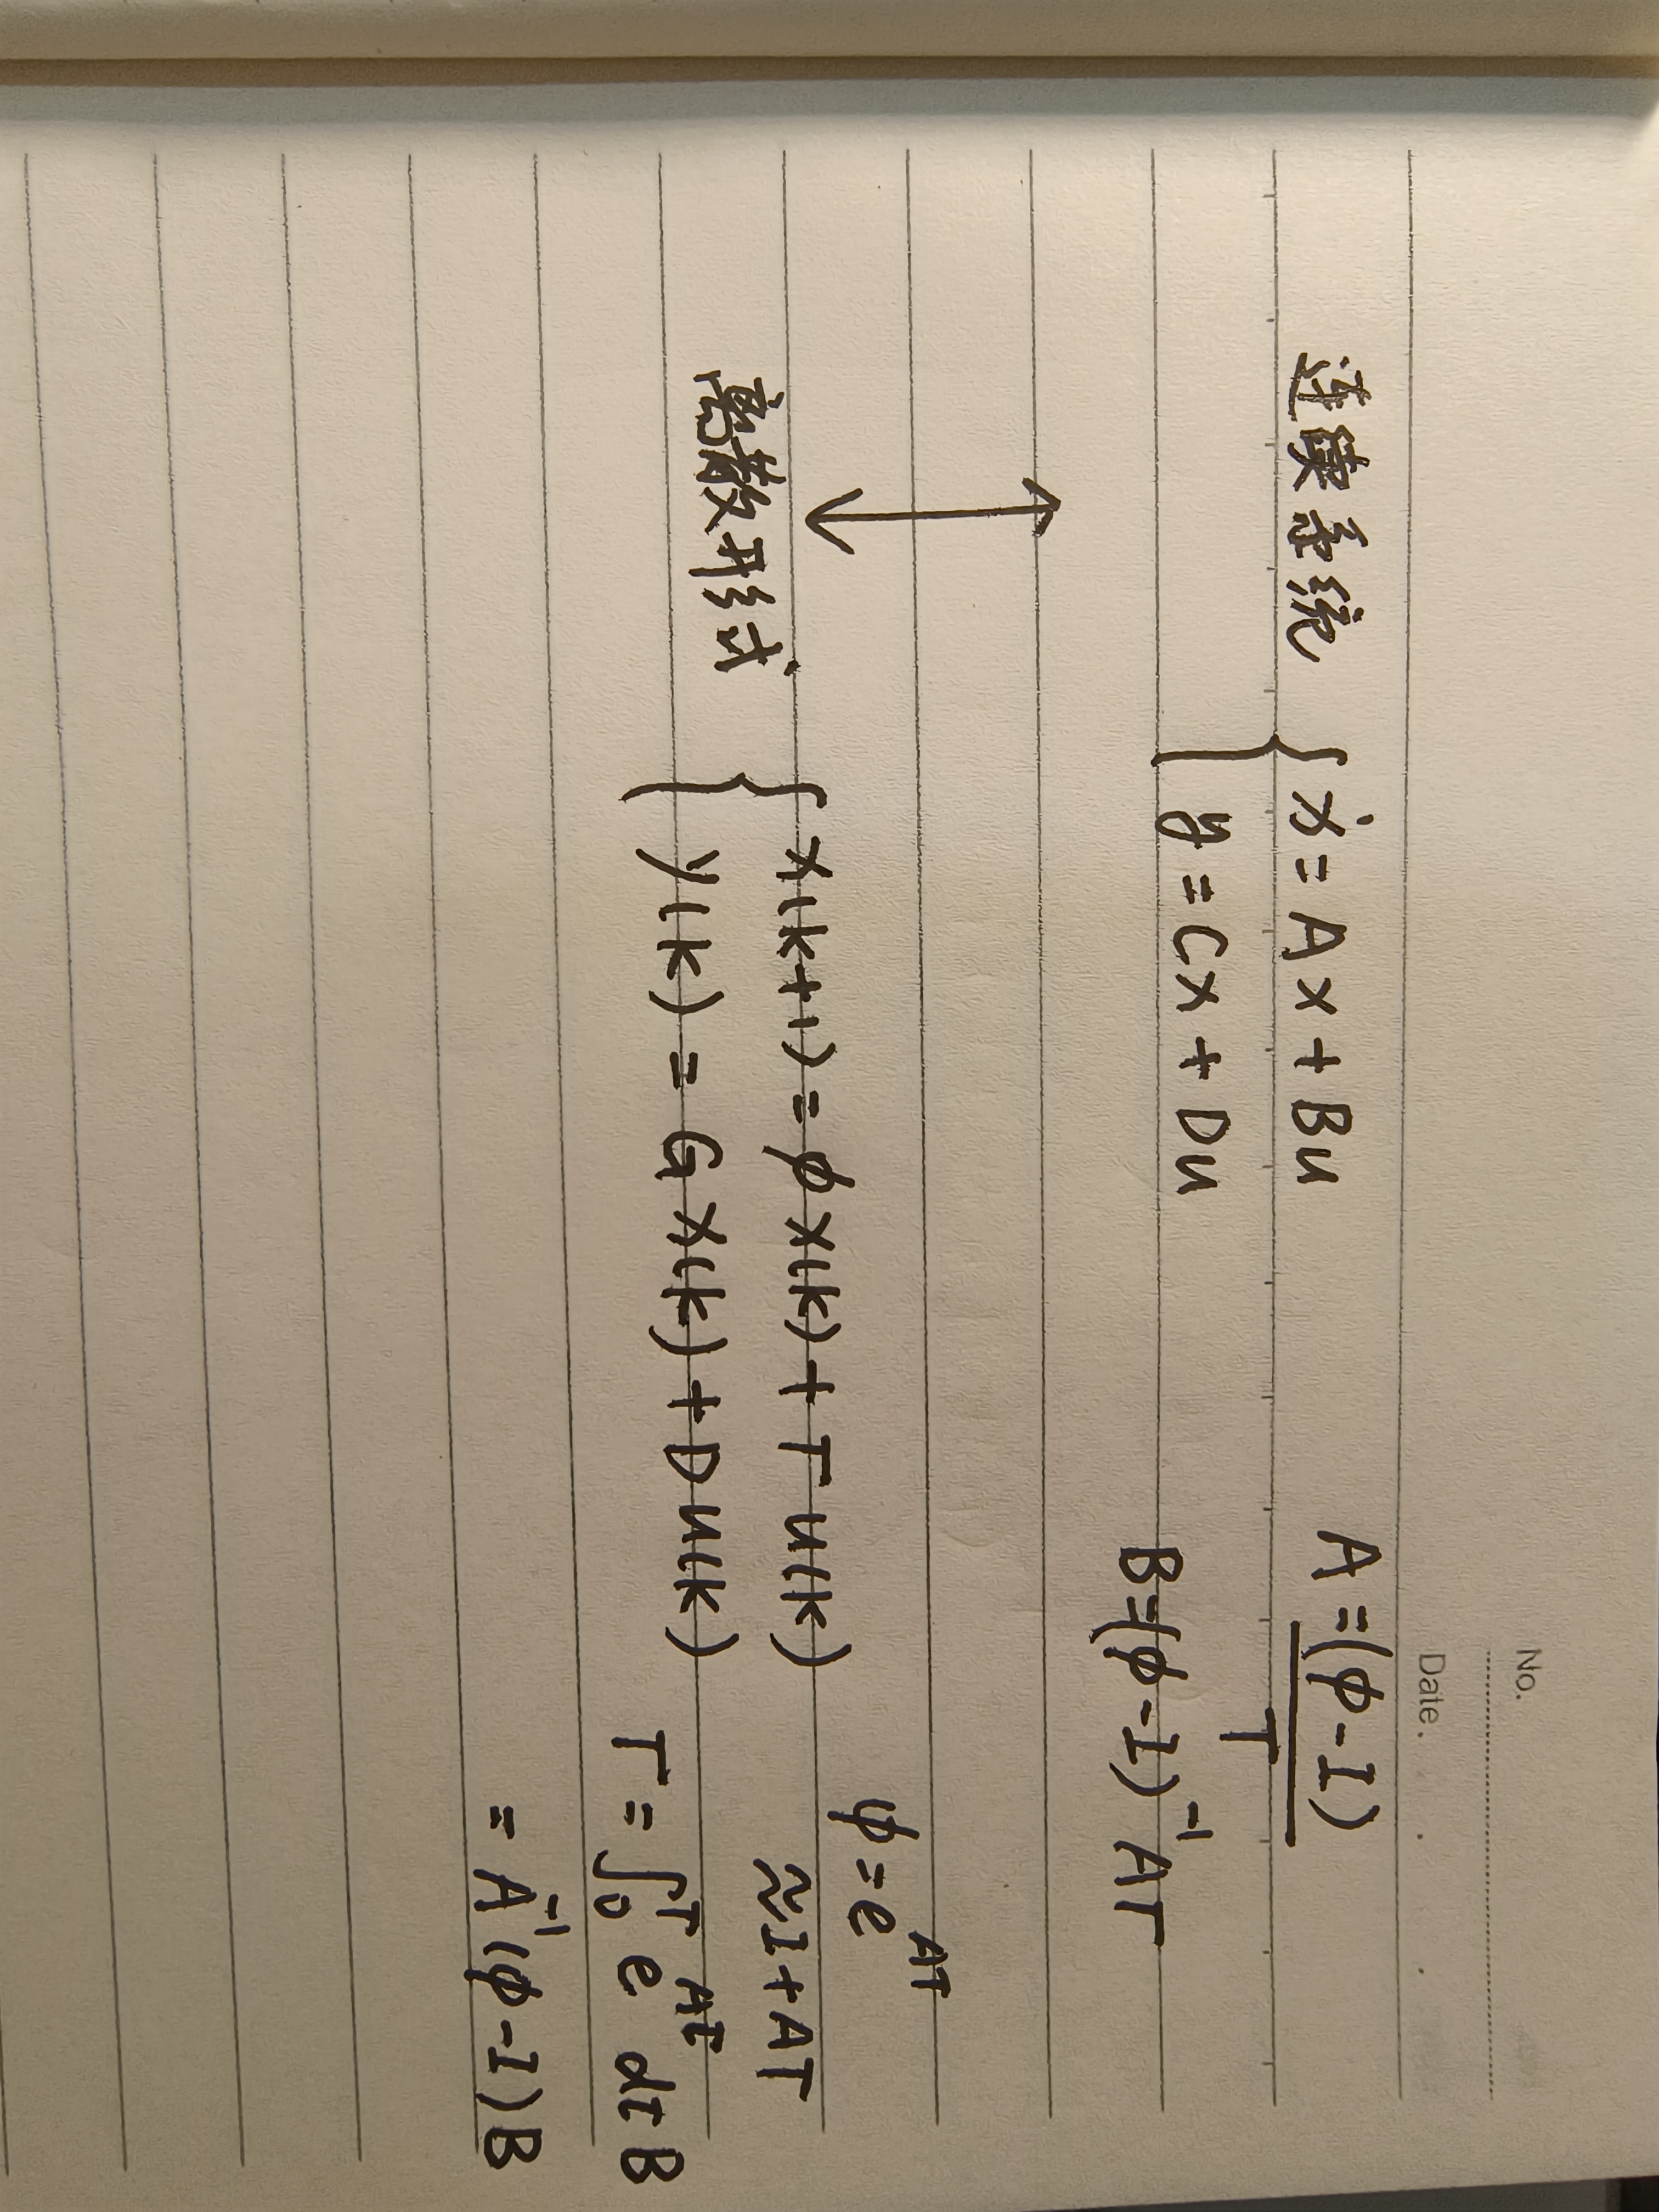 No.
Date.
连续系统 { ẋ = Ax + Bu
y = Cx + Du
A = (φ - I) / T
B = (φ - I)⁻¹ AΓ
离散形式 { x(k+1) = φx(k) + Γu(k)
y(k) = Gx(k) + Du(k)
φ = e^AT
≈ I + AT
Γ = ∫₀ᵀ e^Aτ dτ B
= A⁻¹(φ - I)B